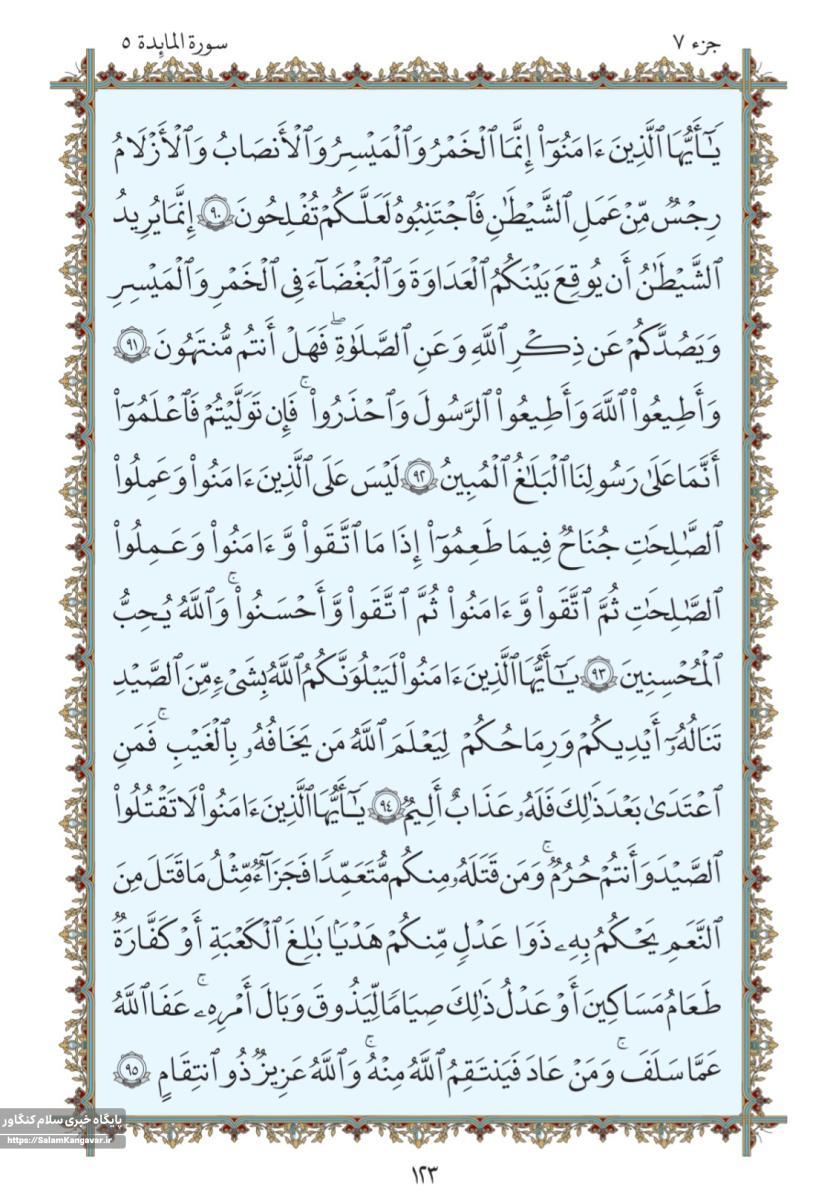 جزء ٧
سورة المائدة ٥
يَـٰٓأَيُّهَا ٱلَّذِينَ ءَامَنُوٓا۟ إِنَّمَا ٱلْخَمْرُ وَٱلْمَيْسِرُ وَٱلْأَنصَابُ وَٱلْأَزْلَـٰمُ
رِجْسٌ مِّنْ عَمَلِ ٱلشَّيْطَـٰنِ فَٱجْتَنِبُوهُ لَعَلَّكُمْ تُفْلِحُونَ ٩٠ إِنَّمَا يُرِيدُ
ٱلشَّيْطَـٰنُ أَن يُوقِعَ بَيْنَكُمُ ٱلْعَدَاوَةَ وَٱلْبَغْضَآءَ فِى ٱلْخَمْرِ وَٱلْمَيْسِرِ
وَيَصُدَّكُمْ عَن ذِكْرِ ٱللَّهِ وَعَنِ ٱلصَّلَوٰةِ ۖ فَهَلْ أَنتُم مُّنتَهُونَ ٩١
وَأَطِيعُوا۟ ٱللَّهَ وَأَطِيعُوا۟ ٱلرَّسُولَ وَٱحْذَرُوا۟ ۚ فَإِن تَوَلَّيْتُمْ فَٱعْلَمُوٓا۟
أَنَّمَا عَلَىٰ رَسُولِنَا ٱلْبَلَـٰغُ ٱلْمُبِينُ ٩٢ لَيْسَ عَلَى ٱلَّذِينَ ءَامَنُوا۟ وَعَمِلُوا۟
ٱلصَّـٰلِحَـٰتِ جُنَاحٌ فِيمَا طَعِمُوٓا۟ إِذَا مَا ٱتَّقَوا۟ وَّءَامَنُوا۟ وَعَمِلُوا۟
ٱلصَّـٰلِحَـٰتِ ثُمَّ ٱتَّقَوا۟ وَّءَامَنُوا۟ ثُمَّ ٱتَّقَوا۟ وَّأَحْسَنُوا۟ ۚ وَٱللَّهُ يُحِبُّ
ٱلْمُحْسِنِينَ ٩٣ يَـٰٓأَيُّهَا ٱلَّذِينَ ءَامَنُوا۟ لَيَبْلُوَنَّكُمُ ٱللَّهُ بِشَىْءٍ مِّنَ ٱلصَّيْدِ
تَنَالُهُۥٓ أَيْدِيكُمْ وَرِمَاحُكُمْ لِيَعْلَمَ ٱللَّهُ مَن يَخَافُهُۥ بِٱلْغَيْبِ ۚ فَمَنِ
ٱعْتَدَىٰ بَعْدَ ذَٰلِكَ فَلَهُۥ عَذَابٌ أَلِيمٌ ٩٤ يَـٰٓأَيُّهَا ٱلَّذِينَ ءَامَنُوا۟ لَا تَقْتُلُوا۟
ٱلصَّيْدَ وَأَنتُمْ حُرُمٌ ۚ وَمَن قَتَلَهُۥ مِنكُم مُّتَعَمِّدًا فَجَزَآءٌ مِّثْلُ مَا قَتَلَ مِنَ
ٱلنَّعَمِ يَحْكُمُ بِهِۦ ذَوَا عَدْلٍ مِّنكُمْ هَدْيًۢا بَـٰلِغَ ٱلْكَعْبَةِ أَوْ كَفَّـٰرَةٌ
طَعَامُ مَسَـٰكِينَ أَوْ عَدْلُ ذَٰلِكَ صِيَامًا لِّيَذُوقَ وَبَالَ أَمْرِهِۦ ۗ عَفَا ٱللَّهُ
عَمَّا سَلَفَ ۚ وَمَنْ عَادَ فَيَنتَقِمُ ٱللَّهُ مِنْهُ ۗ وَٱللَّهُ عَزِيزٌ ذُو ٱنتِقَامٍ ٩٥
پایگاه خبری سلام کنگاور
https://SalamKangavar.ir
١٢٣